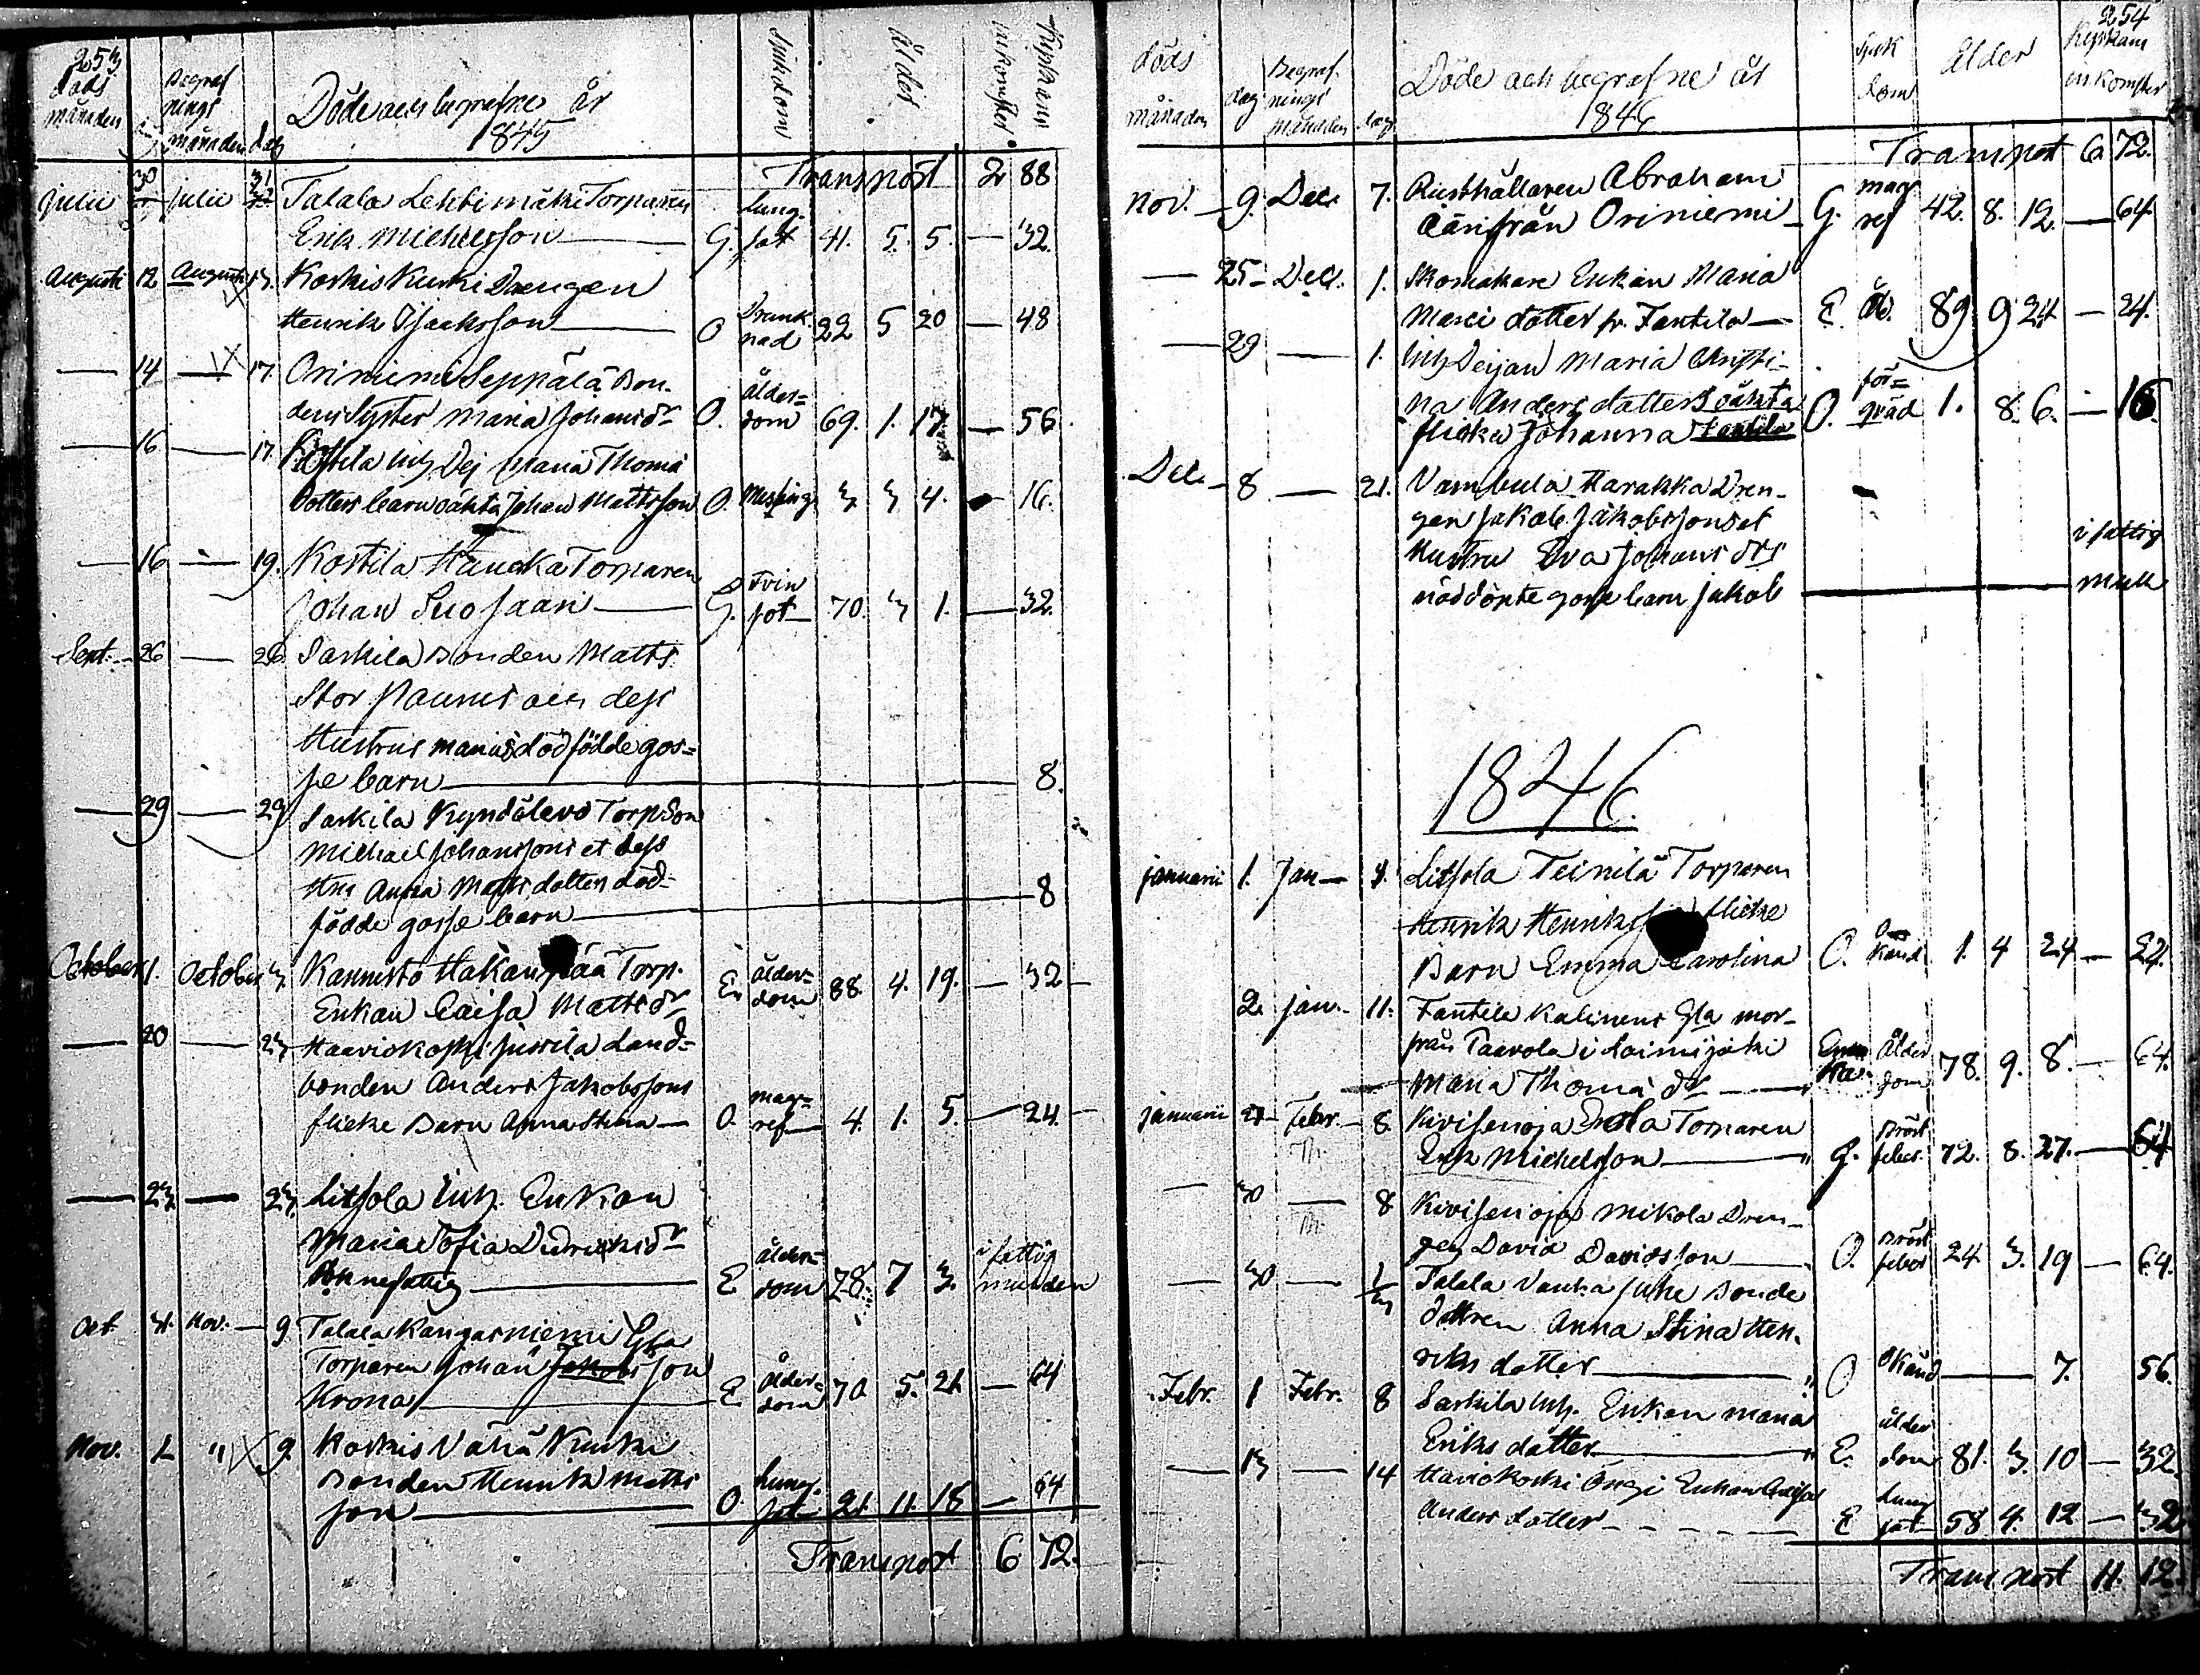 253
döds
månaden
Begraf
nings
månaden dag
Döde och begrafne år
1845
Sjukdom
ålder
Kyrkans
inkomster
Transport 2 88
Julii 30 Julii 31 Talala Lehtimäki Torparen
Erik Michelsson G. Lung-
sot 41. 5. 5. — 32.
Augusti 12 Augusti 17. Koskis Kurki Drengen
Henrik Isacksson O Drunk-
nad 22 5 20 — 48
— 14 — 17. Oriniemi Seppälä Bon-
dens Syster Maria Johansdr O. ålder-
dom 69. 1. 17. — 56
— 16 — 17. Kostila Inh. Dej Maria Thomä
Dotters barn oäkta Johan Mattsson O. Messling 3 3 4. — 16.
— 16 — 19. Kostila Hauska Torparen
Johan Suojaan G. Tvin
sot 70. 3 1. — 32.
Sept. — 26 — 26 Sarkila Bonden Matts
Stor Paunus och dess
Hustrus Marias dödfödde gos-
se barn 8.
— 29 — 29 Sarkila Kyndälevo Torp Son
Michael Johanssons et dess
Hru Anna Matts dotters död-
födde gosse barn 8
October 1. October 3 Kannisto Hakanpää Torp.
Enkan Caisa Mattsdr E. ålder-
dom 88. 4. 19. — 32
— 20 — 23 Haaviokoski Jussila Land-
bonden Anders Jakobssons
flicke Barn Anna Stina O. mag-
ref 4. 1. 5. — 24
— 23 — 23. Litsola Inh. Enkan
Maria Sofia Didriksdr
Sockne fattig E ålder-
dom 78. 7 3. i fattig
munden
Oct. 31. Nov. — 9. Talala Kangasniemi Gla
Torparen Johan Jakobsson
Krona E. ålder-
dom 70 5. 21. — 64
Nov. 2 " 9. Koskis Vähä Kurki
Bonden Henrik Matts
son O. Lung-
sot 21. 11. 18 — 64
Transport 6 72.
254
döds
månaden dag
Begraf-
nings
månaden dag
Döde och begrafne år
1846
Sjuk
dom
Ålder
Kyrkans
inkomster
Transport 6 72.
Nov. — 9. Dec. 7. Rusthållaren Abraham
från Oriniemi G. mag
ref 42. 8. 12. — 64
— 25 — Dec. 1. Skomakare Enkan Maria
Marci dotter fr. Fantila E. åld. 89 9 24 — 24.
— 29 — 1. Inh. Dejan Maria Christi-
na Anders dotters oäkta
flicka Johanna Fantila O. för-
gräd 1. 8. 6. — 16
Dec. — 8 — 21. Vambula Harakka Dren-
gen Jakob Jakobssons et
Hustru Eva Johans drs
nöddöpte gosse barn Jakob
i fattig
munk
1846.
Januarii 1. Jan — 4. Litsola Teinilä Torparen
Henrik Henrikss flicke
Barn Emma Carolina O. Okänd 1. 4 24 — 24.
2. Jan. — 11. Fantila Kalinens Gla mor-
från Taavola i Loimijoki
Maria Thomä dr Enka ålder
dom 78. 9. 8. — 64.
Januarii 21 — Febr. — 8. Kivisenoja Torparen
Erik Michelsson G. Bröst
feber 72. 8. 27. — 64
— 30 — 8 Kivisenoja Mikola Dren-
gen David Davidsson O. Bröst
feber 24 3. 19 — 64.
— 30 — Talala Vanha Juhe Bonde
Dottren Anna Stina Hen-
riks dotter O Okänd — 7. 56.
Febr. 1 Febr. 8 Sarkila Inh. Enkan Maria
Eriks dotter E. ålder
dom 81. 3. 10 — 32.
— 13 — 14 Haviokoski Ongi Enkan Caisa
Anders dotter E Lung
sot 58 4. 12 — 32
Transport 11. 12.